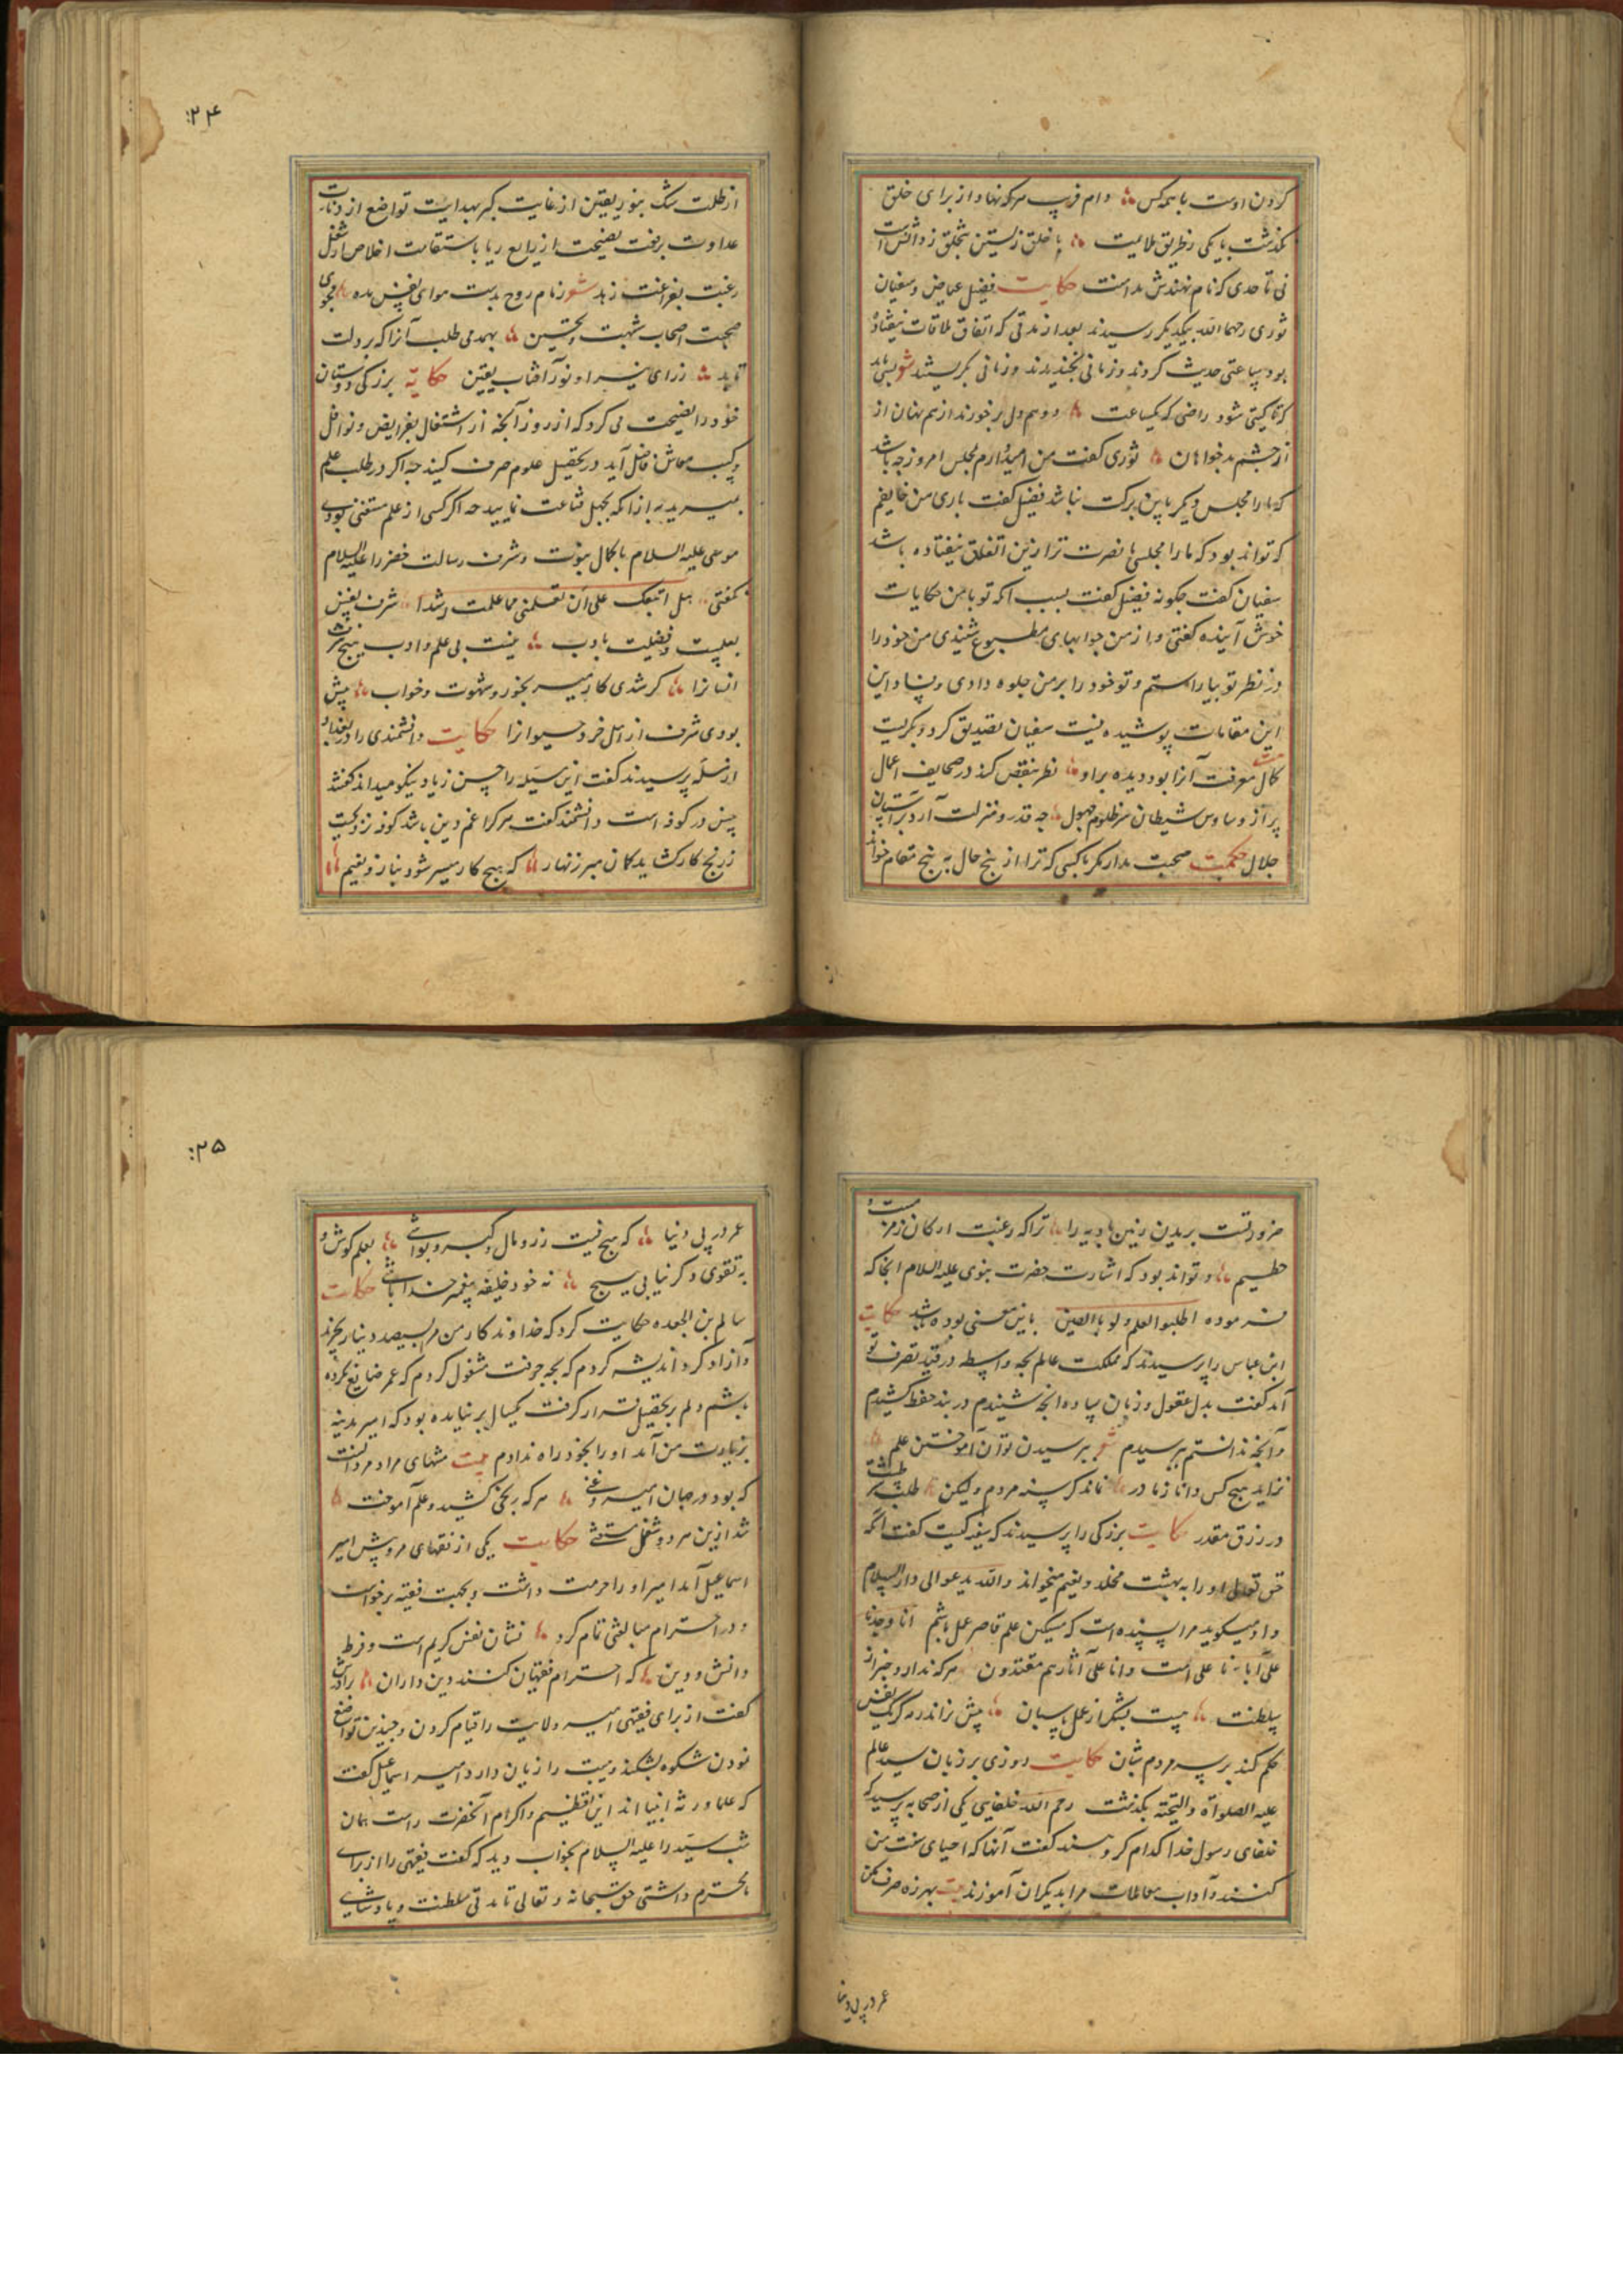 کردن اوست با همه کس دام فریب مرکه نهاد از برای خلق
بگذشت بایکی ز طریق ملامت با خلق زیستن بتخلق ز دانش است
نی تا حدی که نام نهندش مداهنت حکایت فضیل عیاض و سفیان
ثوری رحمهما الله بیکدیگر رسیدند بعد از مدتی که اتفاق ملاقات نیفتاده
بود ساعتی حدیث کردند و زمانی بخندیدند و زمانی بگریستند شعر بسی باید
که تا گیتی شود راضی که یکساعت دو همدل برخورند از هم نهان از
از چشم بدخواهان ثوری گفت من امیدوارم مجلس امروز چه باشد
که ما را مجلس دیگر باین برکت نباشد فضیل گفت باری من خایفم
که تواند بود که ما را مجلسی با نصرت تر ازین اتفاق نیفتاده باشد
سفیان گفت چگونه فضیل گفت بسبب آنکه تو با من حکایات
خوش آینده گفتی و از من جوابهای مطبوع شنیدی من خود را
در نظر تو بیاراستم و تو خود را بر من جلوه دادی
این مقامات پوشیده نیست سفیان تصدیق کرد و بگریست
کمال معرفت آنرا بود دیده براو نظر بنقص کند در صحایف اعمال
پر از وساوس شیطان من ظلوم جهول چه قدر و منزلت آرد بر آستان
جلال حکمت صحبت مدار مگر با کسی که ترا از پنج حال به پنج مقام خواند
از
:۲۴
از ظلمت شک بنور یقین از غایت کبر بهدایت تواضع از
عداوت برفعت نصیحت از ریا باستقامت اخلاص از شغل
رغبت بفراغت زهد شعر زمام روح بدست هوای نفس مده مجوی
صحبت اصحاب شبهت و تخمین بهمدمی طلب آنرا که بر دلت
تابد ز رای منیر او نور آفتاب یقین حکایة بزرکی دوستان
خود را نصیحت می کرد که از روز آنچه از اشتغال بفرایض و نوافل
و کسب معاش فاضل آید در تحصیل علوم صرف کنید چه اگر در طلب علم
بمیرید به از آنکه بجهل قناعت نمایید چه اگر کسی از علم مستغنی بودی
موسی علیه السلام با کمال نبوت و شرف رسالت خضر را علیه السلام
نگفتی هل اتبعک علی ان تعلمنی مما علمت رشدا شرف نفس
بعلمست و فضیلت بادب نیست بی علم و ادب هیچ شرف
انسانرا گر شدی کار میسر بخور و شهوت و خواب بیش
بودی شرف از اهل خرد حیوانرا حکایت دانشمندی را در بغداد
از مسئله پرسیدند گفت این مسئله را حسن زیاد نیکو میداند گفتند
حسن در کوفه است دانشمند گفت هرکرا غم دین باشد کوفه نزدیکست
ز رنج کار کشاید کمان مبر زنهار که هیچ کار میسر شود بناز و نعیم
ضرورتست بریدن زمین بادیه را ترا که رغبت ارکان زمزمست و
حطیم و تواند بود که اشارت حضرت نبوی علیه السلام آنجا که
فرموده اطلبوا العلم و لو بالصین باین معنی بوده باشد حکایت
ابن عباس را پرسیدند که مملکت عالم بچه واسطه در قید تصرف تو
آمد گفت بدل عقول و زبان سپاه و آنچه شنیدم در بند حفظ کشیدم
و آنچه ندانستم بپرسیدم شعر بپرسیدن توان آموختن علم
نزاید هیچ کس دانا ز مادر نماند گرسنه مردم ولیکن طلب شرطست
در رزق مقدر حکایت بزرکی را پرسیدند که سفیه کیست گفت آنکه
حق تعالی او را به بهشت مخلد و نعیم میخواند والله یدعوا الی دار السلام
و او میگوید مرا پسنده است که مسکین علم قاصر عمل باشم انا وجدنا
علی آبائنا علی امت و انا علی آثارهم مقتدون هرکه ندارد خبر از
سلطنت چیست بتر از عمل پاسبان پیش نراند رمه گرگ نفس
حکم کند بر سر مردم شبان حکایت روزی بر زبان سید عالم
علیه الصلواة والتحیة بگذشت رحم الله خلفایی یکی از صحابه پرسید که
خلفای رسول خدا کدام گروهند گفت آنها که احیای سنت من
کنند و آداب معاملات مرا بدیگران آموزند بیت بهرزه صرف مکن
عمر در پی دنیا
:۲۵
عمر در پی دنیا که هیچ نیست زر و مال و کبر و بواشی بعلم کوش و
به تقوی و گر نیابی هیچ نه خود خلیفه پیغمبر خدا باشی حکایت
سالم بن الجعده حکایت کرد که خداوندگار من مرا بسیصد دینار بخرید
و آزاد کرد اندیشه کردم که بچه حرفت مشغول گردم که عمر ضایع نکرده
باشم دلم بر تحصیل قرار گرفت یکسال بر نیامده بود که امیر مدینه
بزیارت من آمد او را بخود راه ندادم بیت منتهای مراد مرد آنست
که بود در جهان امیر و غنی هرکه رنجی کشید و علم آموخت
شد ازین هر دو شغل مستغنی حکایت یکی از فقهای مرو پیش امیر
اسماعیل آمد امیر او را حرمت داشت و بجهت فقیه برخواست
و در احترام مبالغتی تمام کرد نشان نفس کریم است و فرط
دانش و دین که احترام فقیهان کنند دین داران برادرش
گفت از برای فقیهی امیر ولایت را قیام کردن و چندین تواضع
نمودن شکوه بشکند و هیبت را زیان دارد امیر اسماعیل گفت
که علما ورثه انبیا اند این تعظیم و اکرام آنحضرت راست همان
شب سید را علیه السلام بخواب دید که گفت فقیهی را از برای ما
محترم داشتی حق سبحانه و تعالی تا مدتی سلطنت و پادشاهی